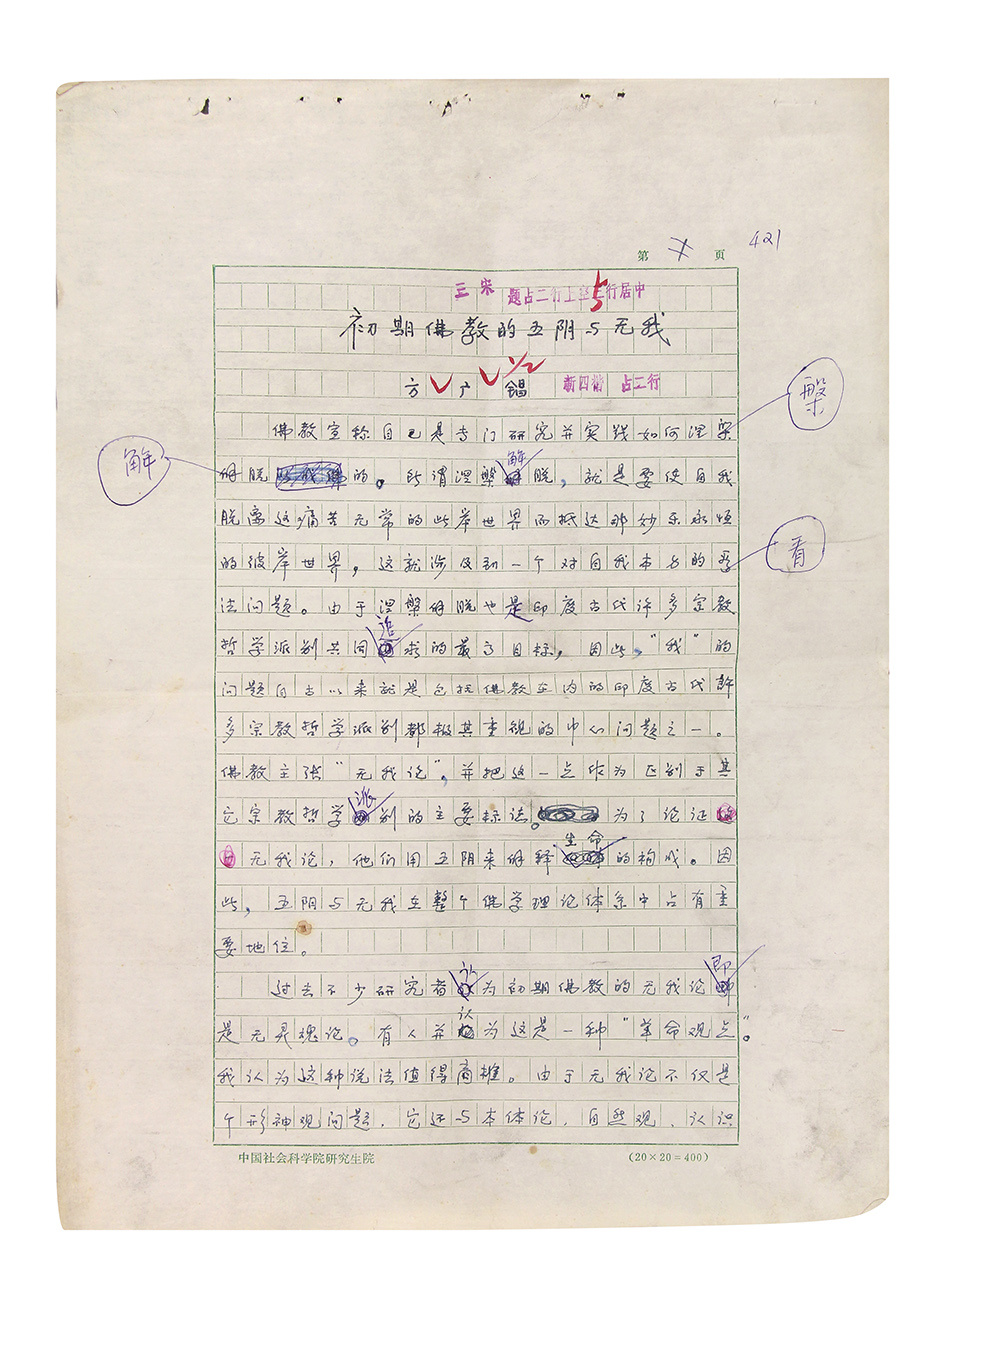 第 7 页 421
三 宋 题占二行上空5行居中
初期佛教的五阴与无我
方广锠 新四楷 占二行
佛教宣称自己是专门研究并实践如何涅槃
解脱的。所谓涅槃解脱，就是要使自我
脱离这痛苦无常的此岸世界而抵达那妙乐永恒
的彼岸世界，这就涉及到一个对自我本身的看
法问题。由于涅槃解脱也是印度古代许多宗教
哲学派别共同追求的最高目标，因此，“我”的
问题自古以来就是包括佛教在内的印度古代许
多宗教哲学派别都极其重视的中心问题之一。
佛教主张“无我论”，并把这一点作为区别于其
它宗教哲学派别的主要标法。为了论证
无我论，他们用五阴来解释生命的构成。因
此，五阴与无我在整个佛学理论体系中占有重
要地位。
过去不少研究者认为初期佛教的无我论即
是无灵魂论。有人并认为这是一种“革命观点”。
我认为这种说法值得商榷。由于无我论不仅是
个形神观问题，它还与本体论、自然观、认识
槃
解
看
中国社会科学院研究生院 (20×20=400)